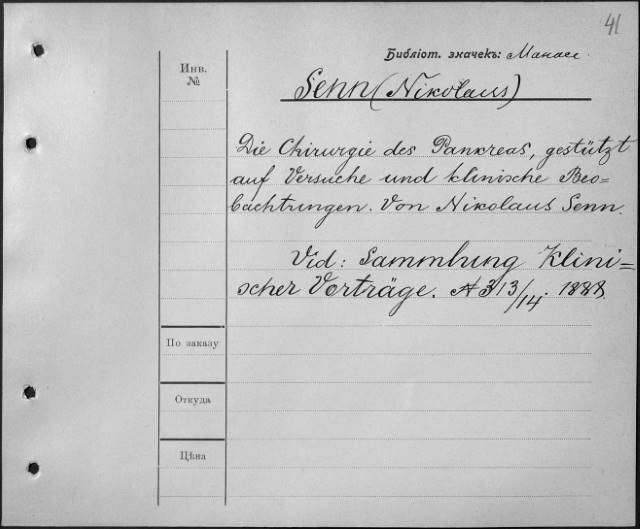 41
Библіот. значекъ: Манасс
Инв.
№
Senn (Nikolaus)
Die Chirurgie des Pankreas, gestützt
auf Versuche und klinische Beo=
bachtungen. Von Nikolaus Senn.
Vid: Sammlung Klini=
scher Vorträge. № 313/14. 1888.
По заказу
Откуда
Цѣна